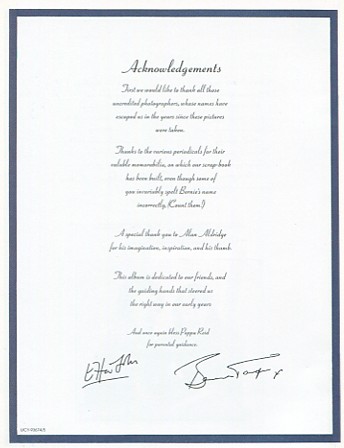 Acknowledgements
First we would like to thank all those
uncredited photographers, whose names have
escaped us in the years since these pictures
were taken.
Thanks to the various periodicals for their
valuable memorabilia, on which our scrap-book
has been built, even though some of
you invariably spelt Bernie's name
incorrectly, (Count them!)
A special thank you to Alan Aldridge
for his imagination, inspiration, and his thumb.
This album is dedicated to our friends, and
the guiding hands that steered us
the right way in our early years
And once again bless Pappa Reid
for parental guidance.
Elton John
Bernie Taupin x